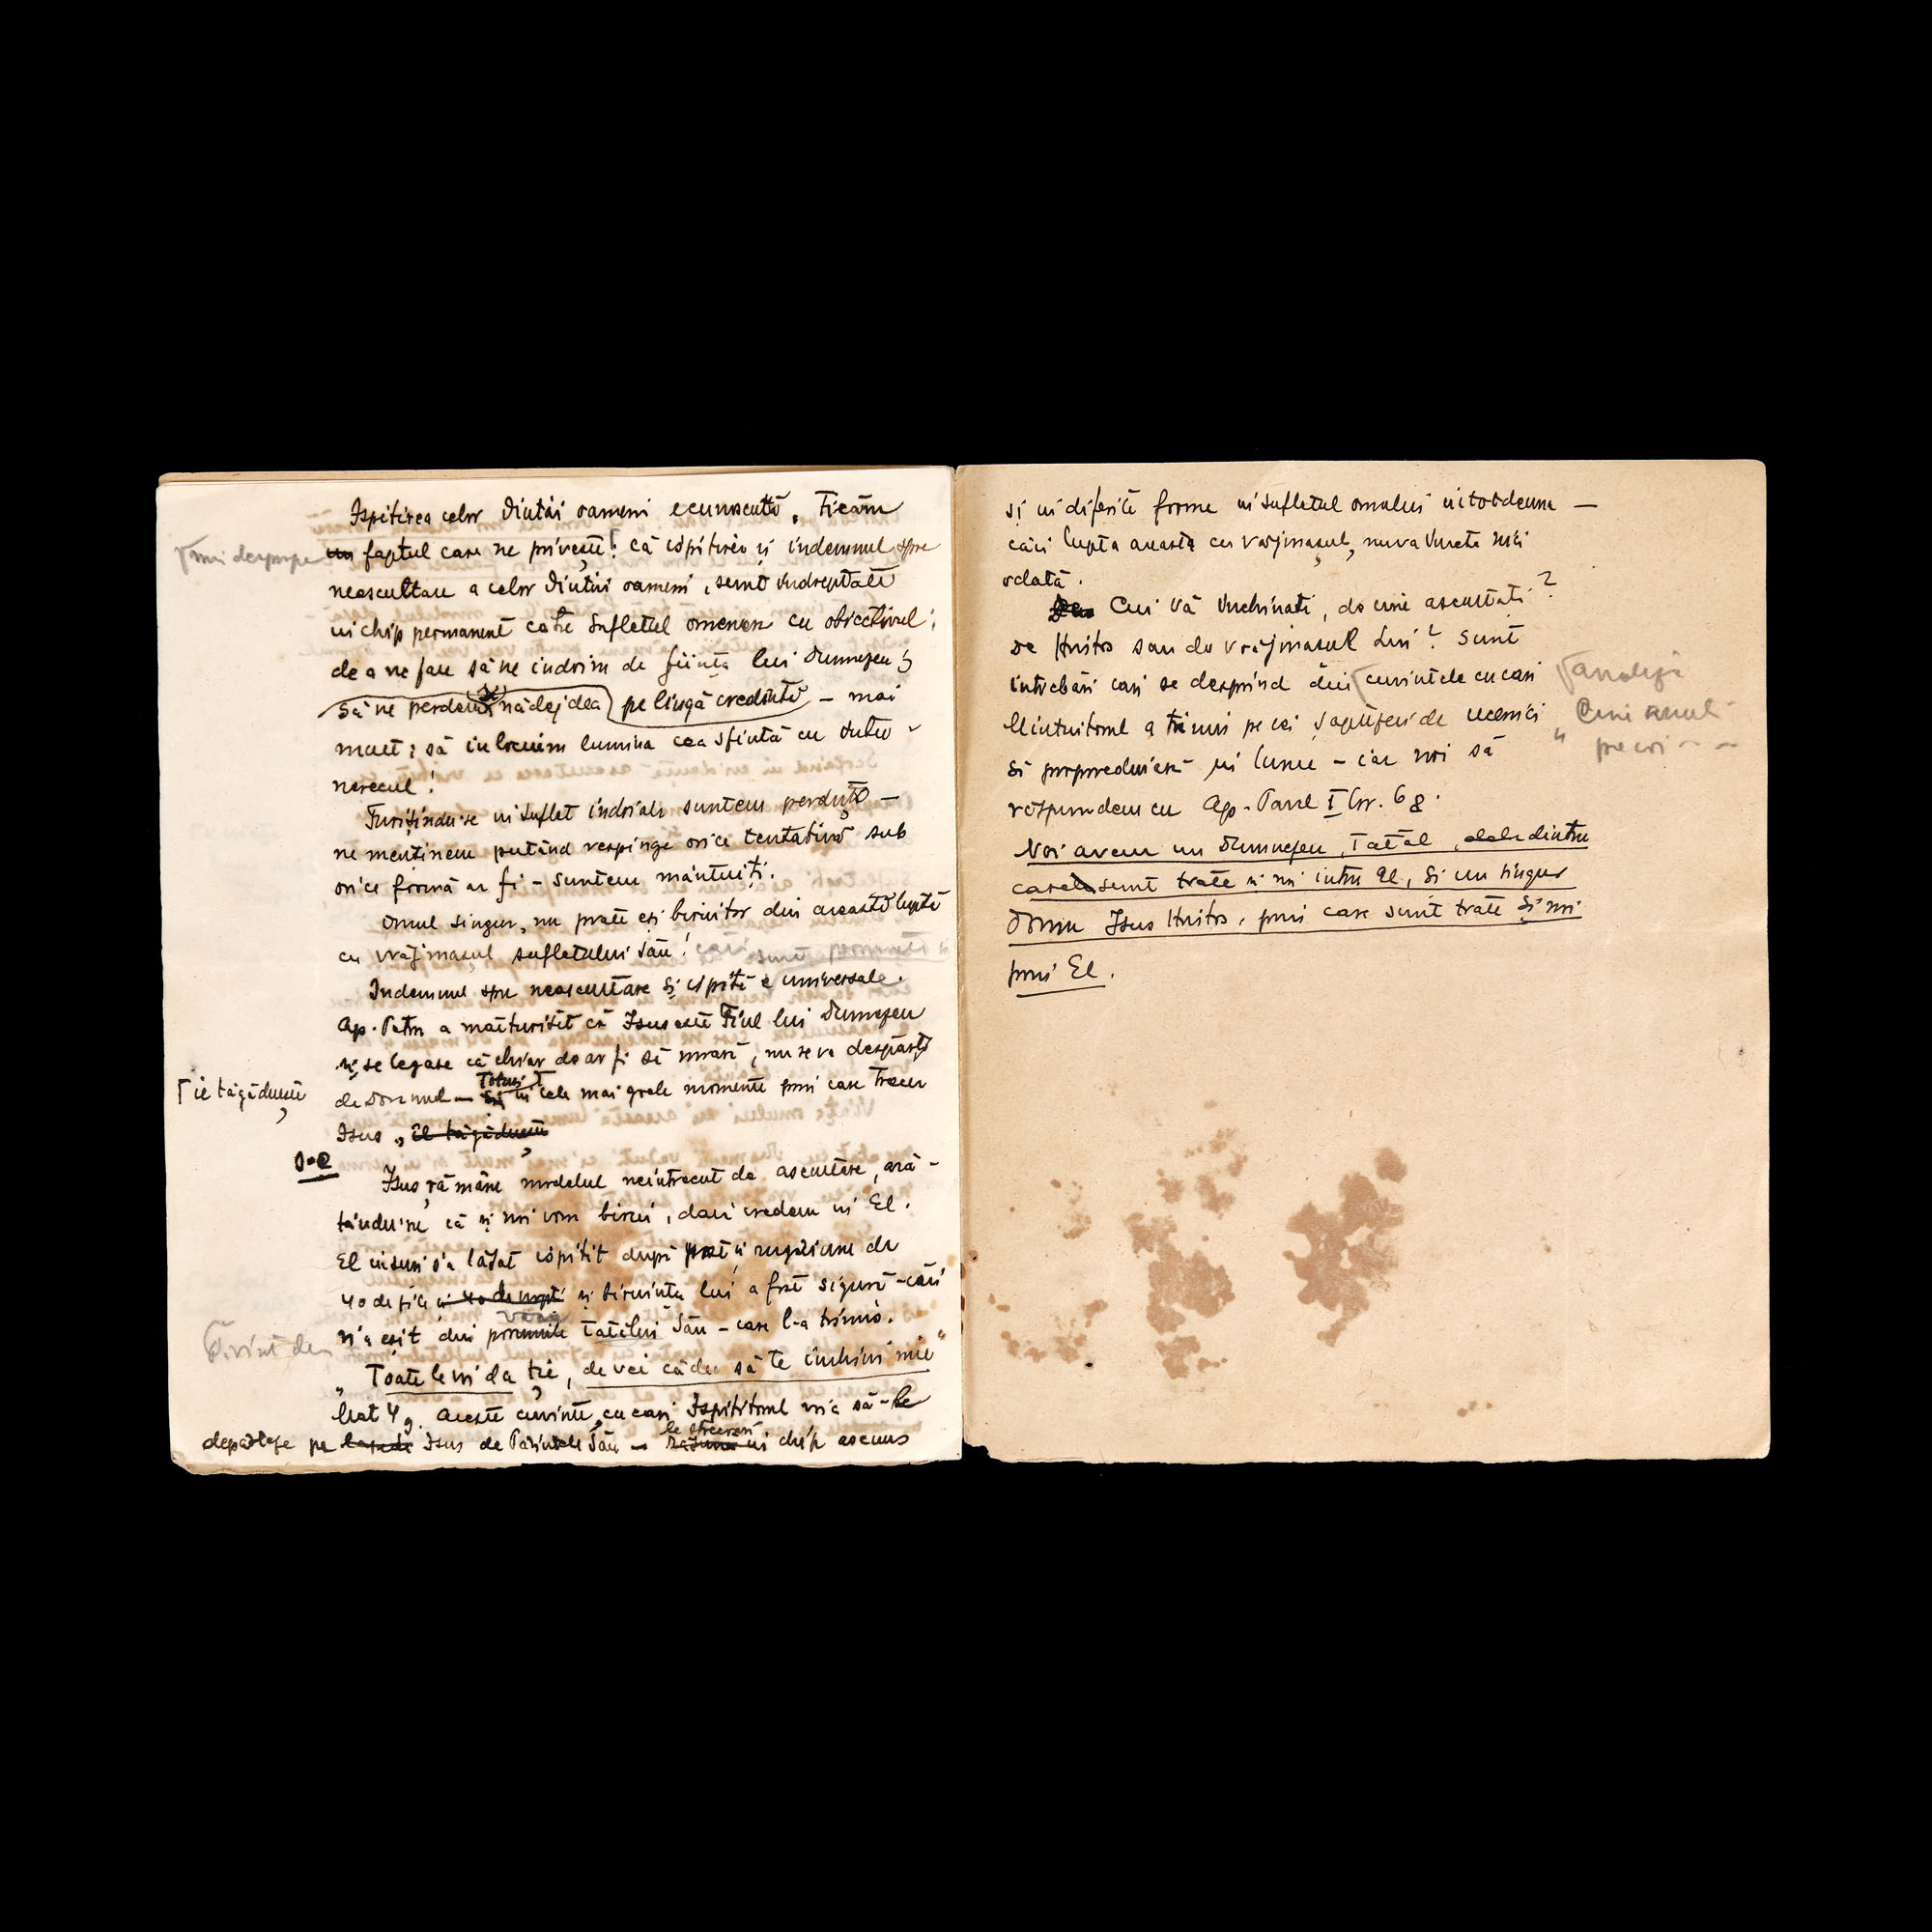 Ispitirea celor dintâi oameni e cunoscută. Ficăm
faptul care ne privește: că ispitirea și indemnul spre
neascultare a celor dintâi oameni, sunt îndreptate
in chip permanent catre sufletul omenesc cu obiectivul:
de a ne face să ne indoim de ființa lui Dumnezeu;
să ne perdem nădejdea pe lîngă credință – mai
mult: să inlocuim lumina cea sfintă cu intu-
nerecul!
in suflet indoiala suntem perduți –
ne menținem putând respinge orice tentativă sub
orice formă ar fi – suntem mântuiți.
Omul singur, nu poate eși biruitor din această luptă
cu vrăjmașul sufletului său! care sunt permanente și
Indemnul spre neascultare și ispită e universale.
Ap. Petru a mărturisit că Isus este Fiul lui Dumnezeu
și se legase că chiar de ar fi să moară, nu se va despărți
de Domnul — Totuși în cele mai grele momente prin care trecea
Γ il tăgăduește
Isus, El tăgăduește
Isus rămâne modelul neintrecut de ascultare, ară-
tându-ne că și noi vom birui, daci credem in El.
El insuși s'a lăsat ispitit după post și rugăciune de
40 de zile și 40 de nopți și biruința lui a fost sigură – căci
n'a eșit din poruncile Tatălui Său – care l-a trimis.
„Toate le voi da ție, de vei cădea să te inchini mie"
Mat 4 9. Aceste cuvinte, cu cari Ispititorul vria să-Le
depărteze pe Isus de Părintele Său – le strecoară in chip ascuns
și in diferite forme in sufletul omului intotdeuna —
căci lupta aceasta cu vrăjmașul, nu va înceta nici
odată.
Cui vă închinați, de cine ascultați?
De Hristos sau de vrăjmașul Lui? Sunt
intrebări cari se desprind din cuvintele cu cari
Mintuitorul a trimis pe cei șaptezeci de ucenici
să propoveduiască in lume – iar noi să
răspundem cu Ap. Pavel I Cor. 6 8.
Noi avem un Dumnezeu, Tatăl, dela dintru
care sunt toate și noi intru El, și un singur
Domn Isus Hristos, prin care sunt toate și noi
prin El.